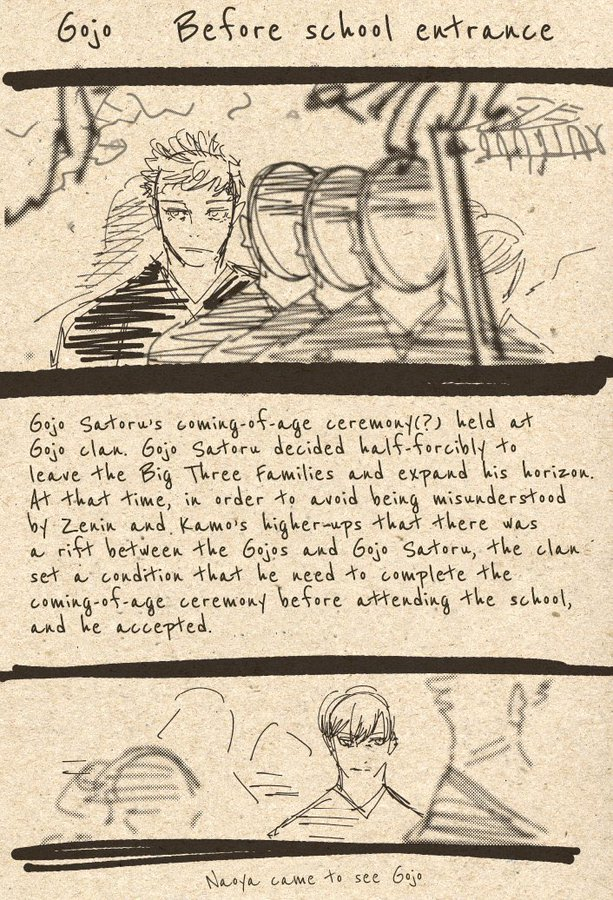 Gojo Before school entrance
Gojo Satoru's coming-of-age ceremony(?) held at
Gojo clan. Gojo Satoru decided half-forcibly to
leave the Big Three Families and expand his horizon.
At that time, in order to avoid being misunderstood
by Zenin and Kamo's higher-ups that there was
a rift between the Gojos and Gojo Satoru, the clan
set a condition that he need to complete the
coming-of-age ceremony before attending the school,
and he accepted.
Naoya came to see Gojo